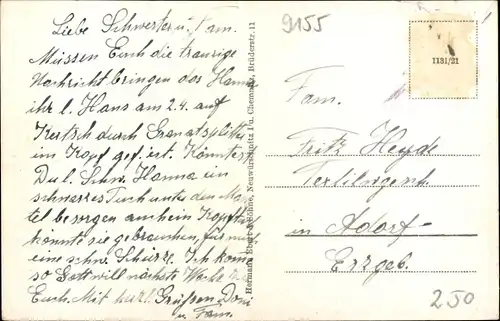 Liebe Schwester u. Fam.
Müssen Euch die traurige
Nachricht bringen das Hanna
ihr l. Hans am 2.4. auf
Kertsch durch Granatsplitter
im Kopf gef. ist. Könntest
Du l. Schw. Hanna ein
schwarzes Tuch unter den Man-
tel besorgen auch ein Kopftuch
könnte sie gebrauchen, für mich
eine schw. Schürze. Ich komme
so Gott will nächste Woche zu
Euch. Mit herzl. Grüßen
u. Fam.
Hermann Neuwürschnitz i/u. Chemnitz, Brüderstr. 11
9155
1131/21
Fam.
Fritz Heyde
Textilagent
in Adorf
Erzgeb.
250